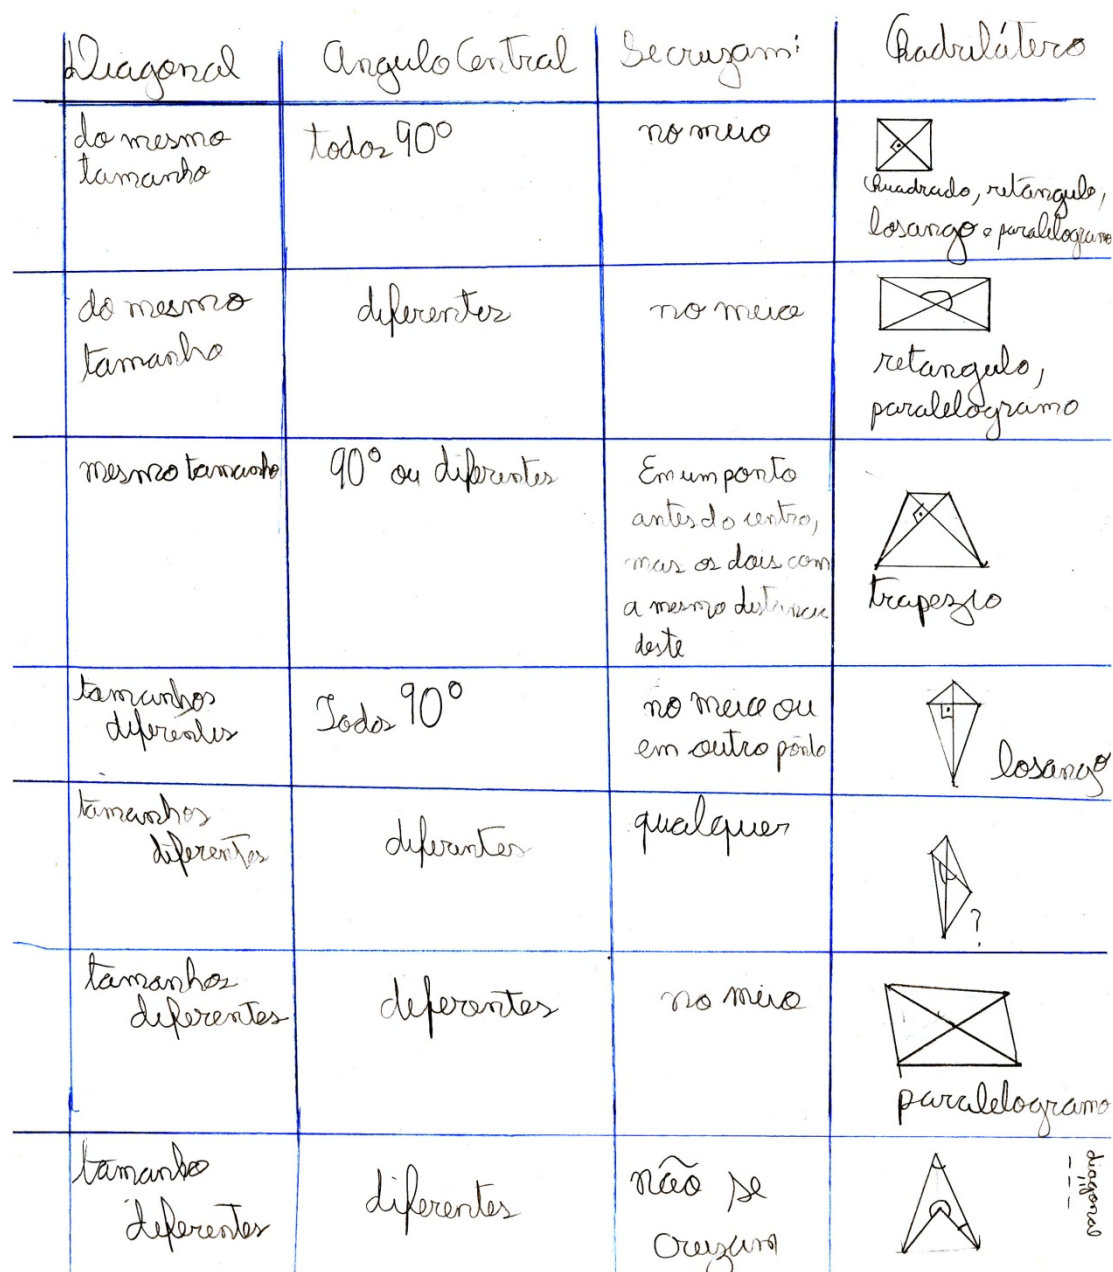 Diagonal
Angulo Central
Se cruzam:
Quadrilátero
do mesmo
tamanho
todos 90°
no meio
Quadrado, retângulo,
losango e paralelogramo
do mesmo
tamanho
diferentes
no meio
retangulo,
paralelogramo
mesmo tamanho
90° ou diferentes
Em um ponto
antes do centro,
mas os dois com
a mesma distancia
deste
trapezio
tamanhos
diferentes
Todos 90°
no meio ou
em outro ponto
losango
tamanhos
diferentes
diferentes
qualquer
?
tamanhos
diferentes
diferentes
no meio
paralelogramo
tamanho
diferentes
diferentes
não se
cruzam
diagonal